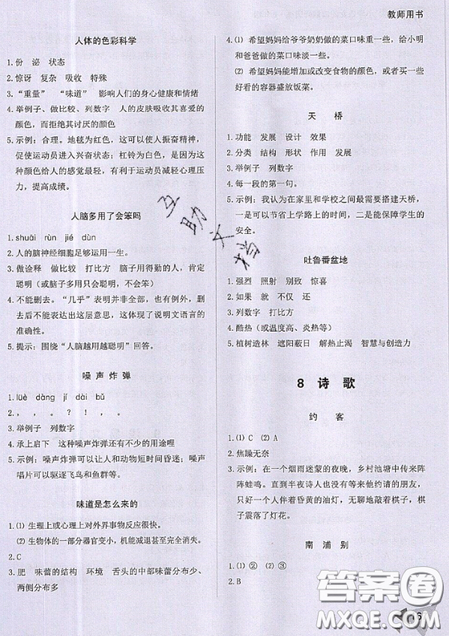 教师用书
人体的色彩科学
1. 份 泌 状态
2. 惊讶 复杂 吸收 特殊
3. “重量” “味道” 影响人们的身心健康和情绪
4. 举例子、做比较、列数字 人的皮肤吸收其喜爱的
颜色，而拒绝其讨厌的颜色
5. 示例：合理。地毯为红色，这可以使人振奋精神，
促使运动员进入兴奋状态；杠铃为白色，是因为
这种颜色给人的感觉最轻，有利于运动员减轻心理压
力，提高成绩。
人脑多用了会笨吗
1. shuāi rùn jié dùn
2. 人的脑神经细胞足够运用一生。
3. 做诠释 做比较 打比方 脑子用得勤的人，肯定
聪明（或脑子多用只会聪明，不会笨）
4. 不能删去。“几乎”表明并非全部，也有例外，删
去后不能表达出这层意思，这表现了说明文语言的
准确性。
5. 提示：围绕“人脑越用越聪明”回答。
噪声炸弹
1. lüè dàng jí dài bǔ
2. ， 。 ， ？ ， ， 。
3. 举例子 列数字
4. 承上启下 这种噪声炸弹还有不少的用途哩
5. 示例：噪声可以让人和动物短时间昏迷；噪声
唱片可以驱逐飞鸟和鱼群等。
味道是怎么来的
1. ⑴ 生理上或心理上对外界事物反应很快。
⑵ 生物体的一部分器官变小，机能减退甚至完全消失。
2. C
3. 肥 味蕾的结构 环境 舌头的中部味蕾较少、
两侧分布多
5. ⑴ 希望妈妈给爷爷奶奶做的菜口味重一些，给小明
和爸爸做的菜口味淡一些。
⑵ 希望妈妈能增加或改变食物的颜色，或者买一些
好看的容器盛放饭菜。
天桥
1. 功能 发展 设计 效果
2. 分类 结构 形状 作用 发展
3. 举例子 列数字
4. 每一段的第一句。
5. 示例：我认为在家里和学校之间最需要搭建天桥，
一是可以节省上学路上的时间，二是能保障学生的
安全。
吐鲁番盆地
1. 强烈 照射 别致 惊喜
2. 如果 就 不仅 还
3. 列数字 打比方
4. 酷热（或温度高、炎热等）
5. 植树造林 遮阳蔽日 解热止渴 智慧与创造力
8 诗歌
约客
1. ⑴ ② ⑵ A
2. 焦躁无奈
3. 示例：在一个烟雨迷蒙的夜晚，乡村池塘中传来阵
阵蛙鸣。直到半夜诗人也没有等来他邀约的诗朋
友，只好一个人伴着昏黄的油灯，无聊地敲着棋子，棋
子震落了灯花。
南浦别
1. ⑴ ② ⑵ ③ ⑶ ①
2. B
互助文档
答案圈
MXQE.COM